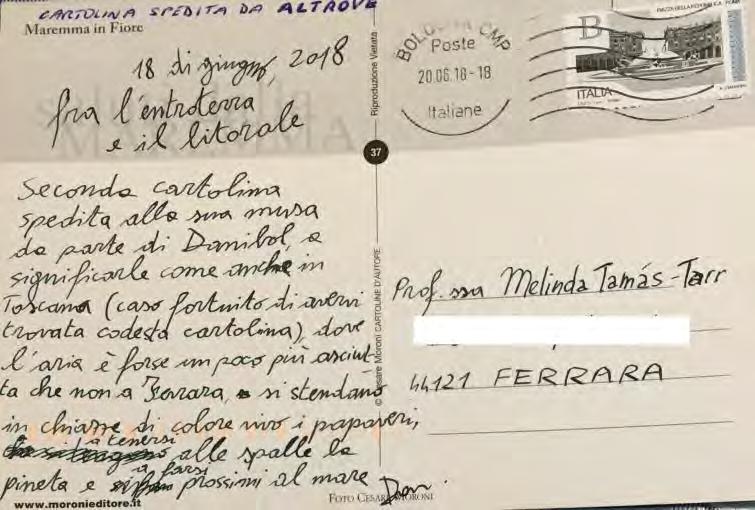 CARTOLINA SPEDITA DA ALTROVE
Maremma in Fiore
18 di giugno, 2018
fra l'entroterra
e il litorale
Seconda cartolina
spedita alla sua musa
da parte di Danibol, a
significarle come anche in
Toscana (caso fortuito di avervi
trovata codesta cartolina), dove
l'aria è forse un poco più asciut-
ta che non a Ferrara, si stendano
in chiazze di colore vivo i papaveri,
a tenersi alle spalle la
pineta e a farsi prossimi al mare
Dan.
www.moronieditore.it
FOTO CESARE MORONI
Riproduzione Vietata
37
© Cesare Moroni CARTOLINE D'AUTORE
BOLOGNA CMP
Poste
20.06.18-18
Italiane
B
ITALIA
Prof.ssa Melinda Tamás-Tarr
44121 FERRARA